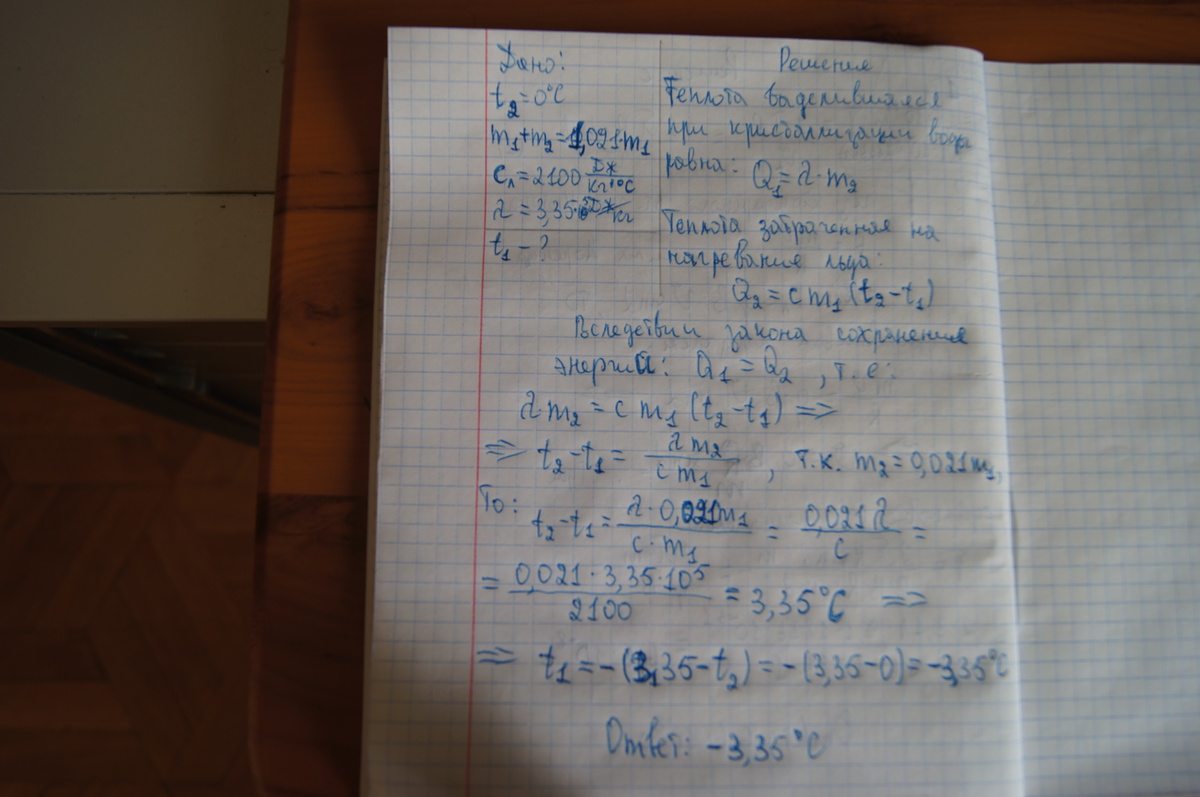 Дано:
t₂ = 0°C
m₁+m₂ = 1,021m₁
Cл = 2100 Дж/кг·°C
λ = 3,35·10⁵ Дж/кг
t₁ - ?
Решение
Теплота выделившаяся
при кристаллизации воды
равна: Q₁ = λ·m₂
Теплота затраченная на
нагревание льда:
Q₂ = c m₁ (t₂-t₁)
Вследствии закона сохранения
энергии: Q₁ = Q₂ , т.е:
λ m₂ = c m₁ (t₂-t₁) =>
=> t₂-t₁ = λ m₂ / c m₁ , т.к. m₂ = 0,021m₁,
То: t₂-t₁ = λ·0,021m₁ / c·m₁ = 0,021 λ / c =
= 0,021·3,35·10⁵ / 2100 = 3,35°C =>
=> t₁ = -(3,35-t₂) = -(3,35-0) = -3,35°C
Ответ: -3,35°C